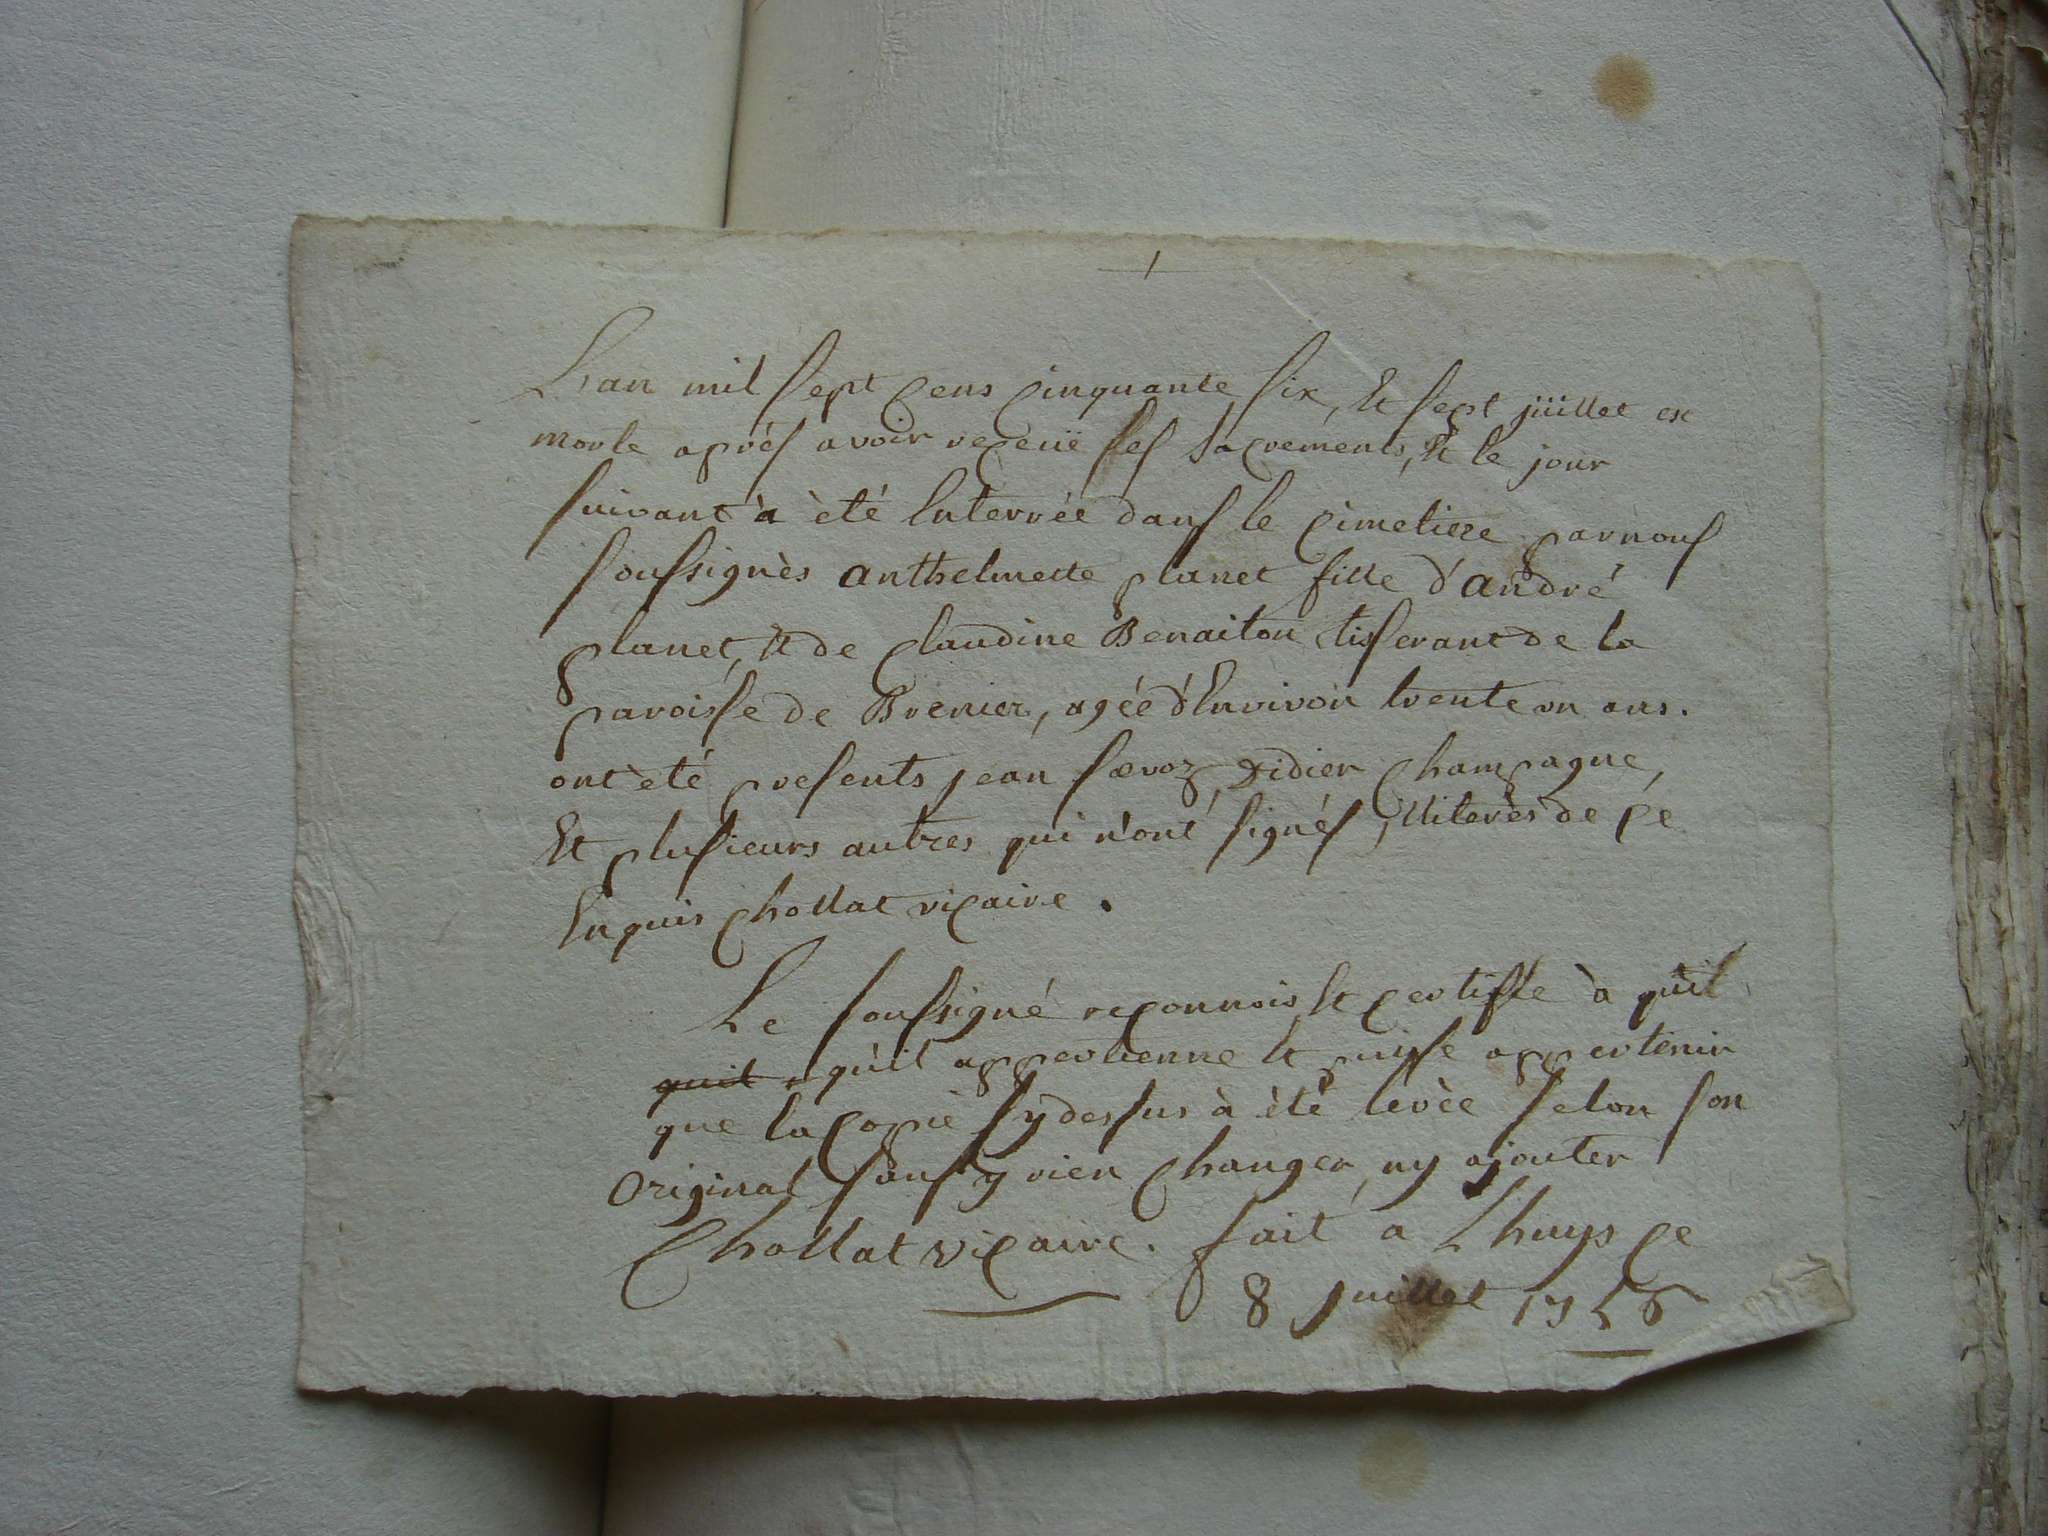 Lan mil sept cens cinquante six, et sept juillet est
morte après avoir reçeüe ses sacrements, et le jour
suivant à èté enterrée dans le cimetiere par nous
soussignès anthelmette planet fille d'andré
planet, et de claudine Benaiton tisserant de la
paroisse de Brenier, agée d'environ trente un ans.
ont èté presents jean Særoz, didier champagne,
et plusieurs autres qui n'ont signés, illiterès de ce
enquis chollat vicaire.
Le soussigné reconnois et certiffie à qu'il
quil qu'il appertienne et puisse appertenir
que la copie sydessus à èté levèe selon son
original sans y rien changer, ny ajouter
Chollat vicaire. fait a Lhuys ce
8 juillet 1756